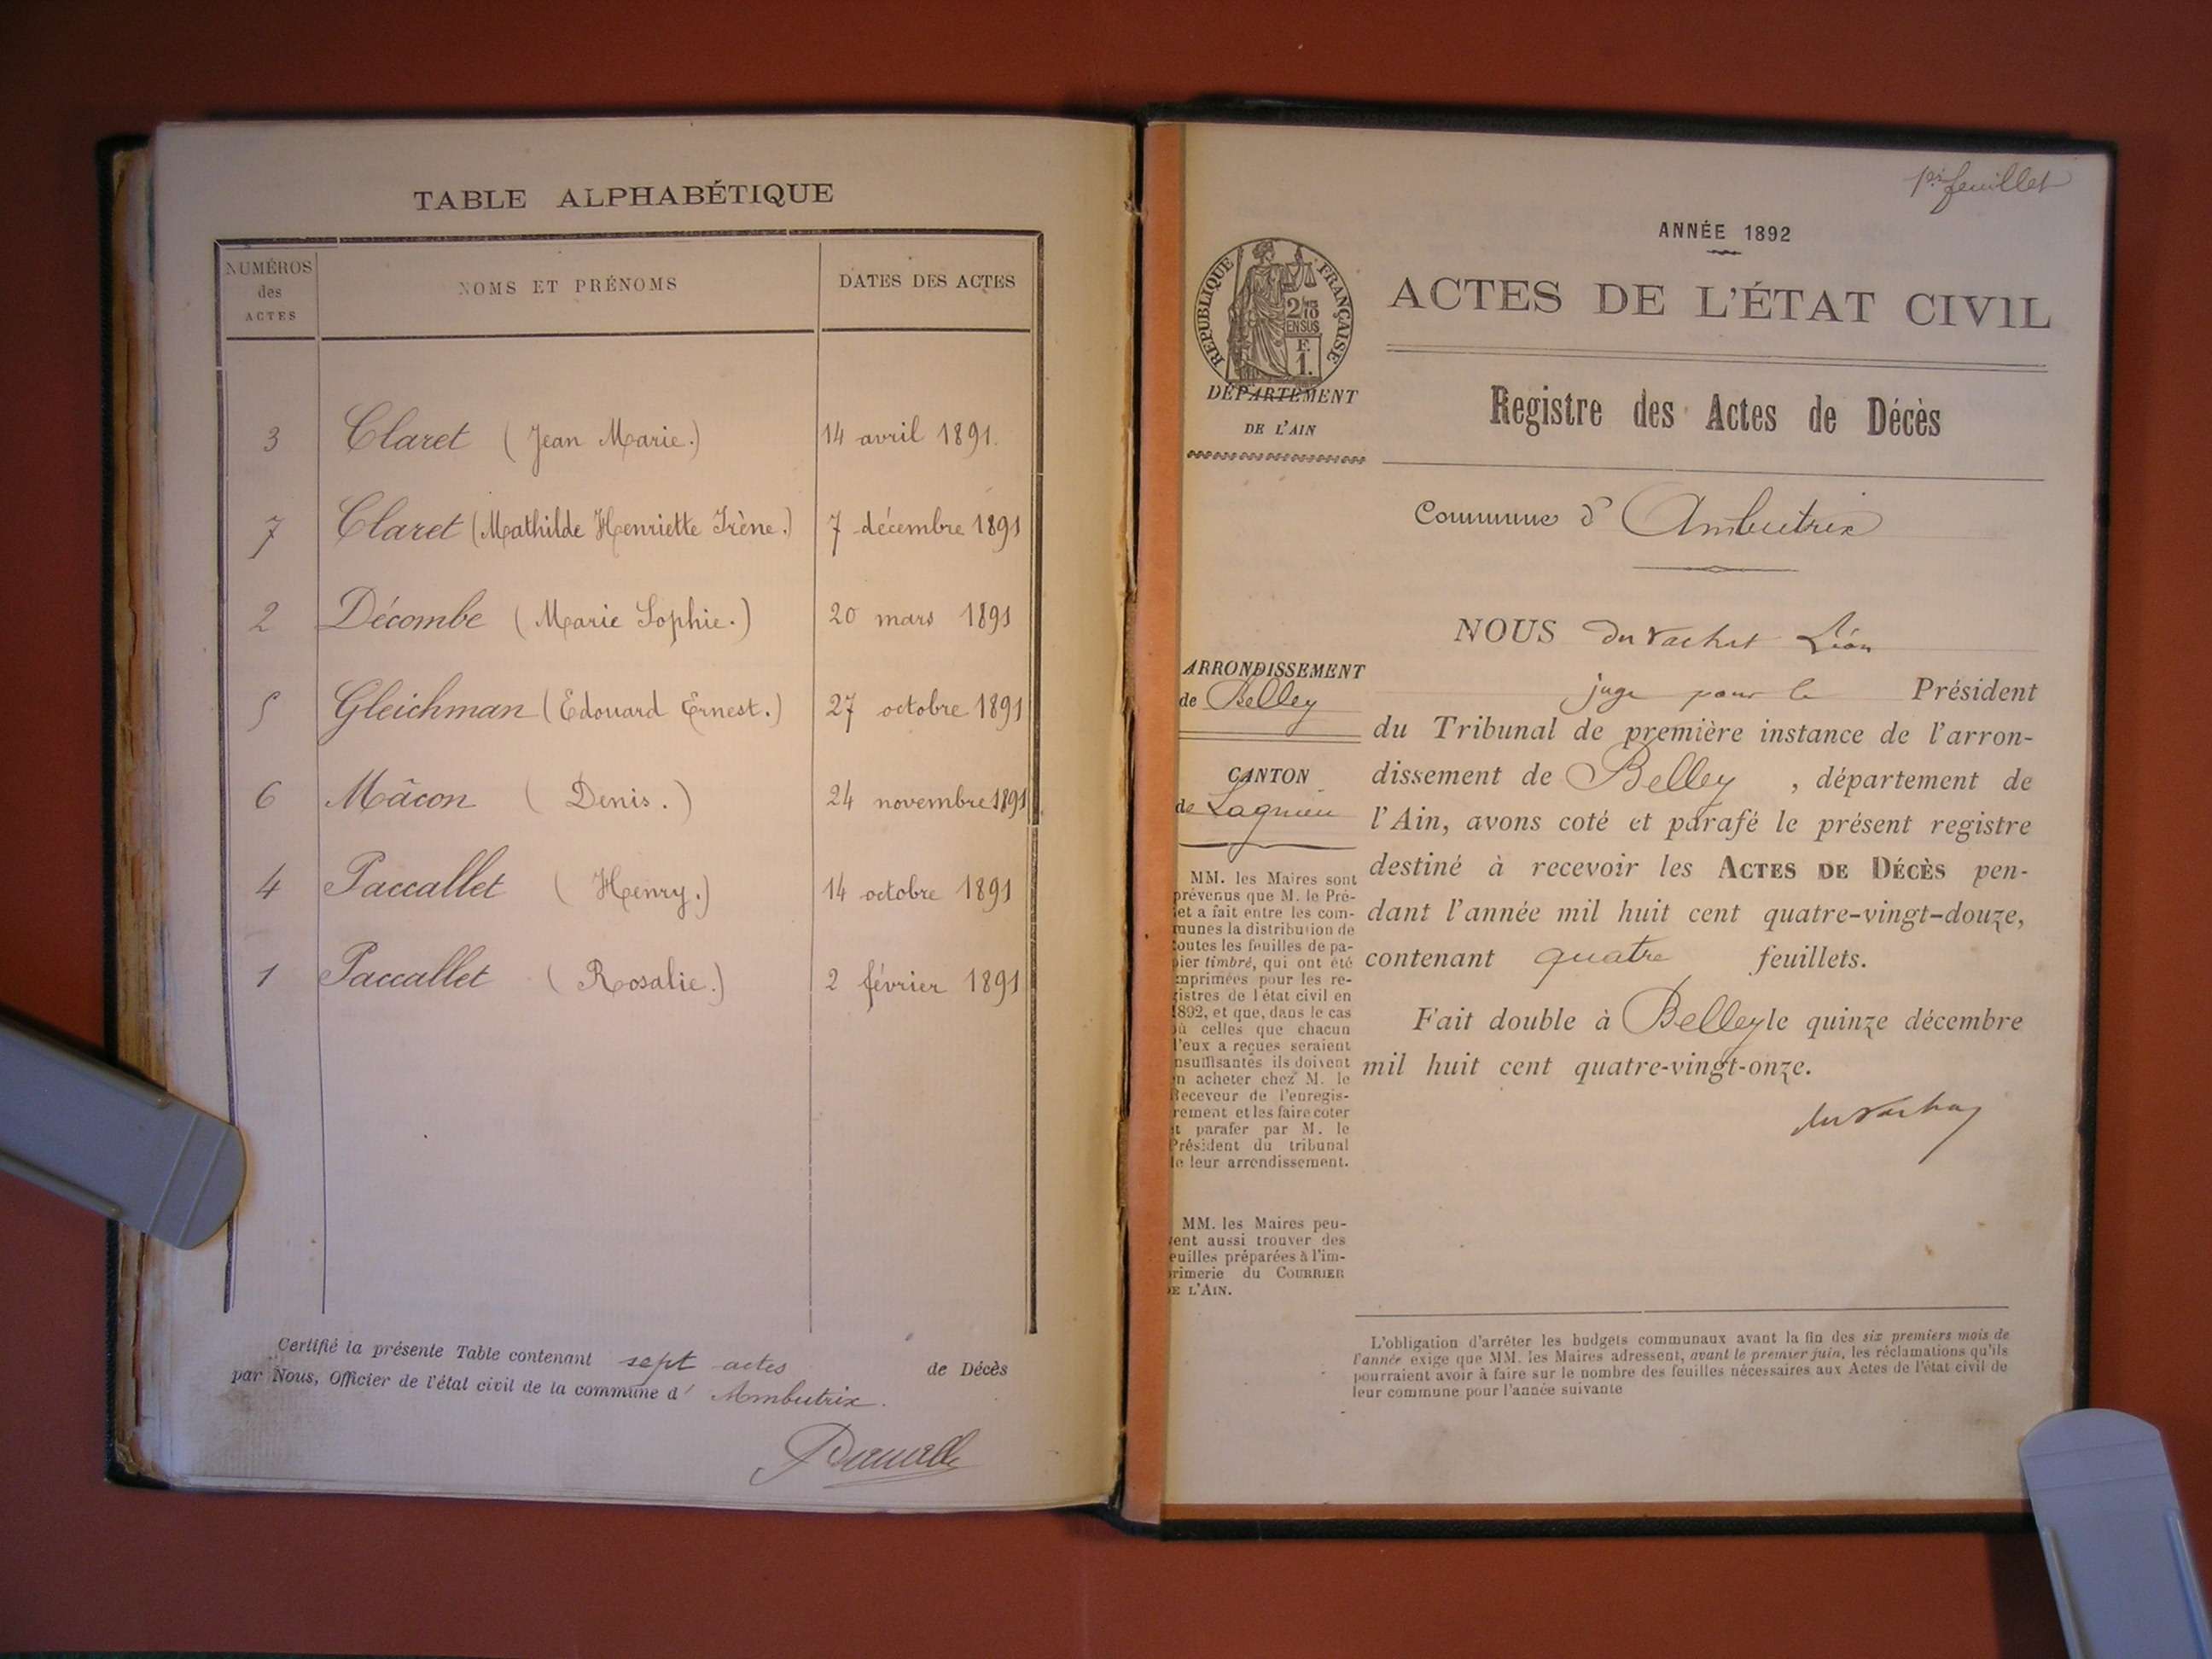 TABLE ALPHABÉTIQUE
NUMÉROS des ACTES NOMS ET PRÉNOMS DATES DES ACTES
3 Claret (Jean Marie.) 14 avril 1891.
7 Claret (Mathilde Henriette Irène.) 7 décembre 1891
2 Décombe (Marie Sophie.) 20 mars 1891
5 Gleichman (Edouard Ernest.) 27 octobre 1891
6 Mâcon (Denis.) 24 novembre 1891
4 Paccallet (Henry.) 14 octobre 1891
1 Paccallet (Rosalie.) 2 février 1891
Certifié la présente Table contenant sept actes de Décès
par Nous, Officier de l'état civil de la commune d' Ambutrix.
1er feuillet
ANNÉE 1892
RÉPUBLIQUE FRANÇAISE
2/10
EN SUS
F.
1.
ACTES DE L'ÉTAT CIVIL
DÉPARTEMENT
DE L'AIN
Registre des Actes de Décès
Commune d' Ambutrix
NOUS du Vachat Léon
juge pour le Président
du Tribunal de première instance de l'arron-
dissement de Belley, département de
l'Ain, avons coté et parafé le présent registre
destiné à recevoir les ACTES DE DÉCÈS pen-
dant l'année mil huit cent quatre-vingt-douze,
contenant quatre feuillets.
Fait double à Belley le quinze décembre
mil huit cent quatre-vingt-onze.
du Vachat
ARRONDISSEMENT
de Belley
CANTON
de Lagnieu
MM. les Maires sont
prévenus que M. le Pré-
et a fait entre les com-
munes la distribution de
toutes les feuilles de pa-
pier timbré, qui ont été
mprimées pour les re-
istres de l'état civil en
1892, et que, dans le cas
où celles que chacun
d'eux a reçues seraient
nsuffisantes ils doivent
en acheter chez M. le
Receveur de l'enregis-
rement et les faire coter
et parafer par M. le
Président du tribunal
de leur arrondissement.
MM. les Maires peu-
vent aussi trouver des
euilles préparées à l'im-
rimerie du COURRIER
DE L'AIN.
L'obligation d'arrêter les budgets communaux avant la fin des six premiers mois de
l'année exige que MM. les Maires adressent, avant le premier juin, les réclamations qu'ils
pourraient avoir à faire sur le nombre des feuilles nécessaires aux Actes de l'état civil de
leur commune pour l'année suivante